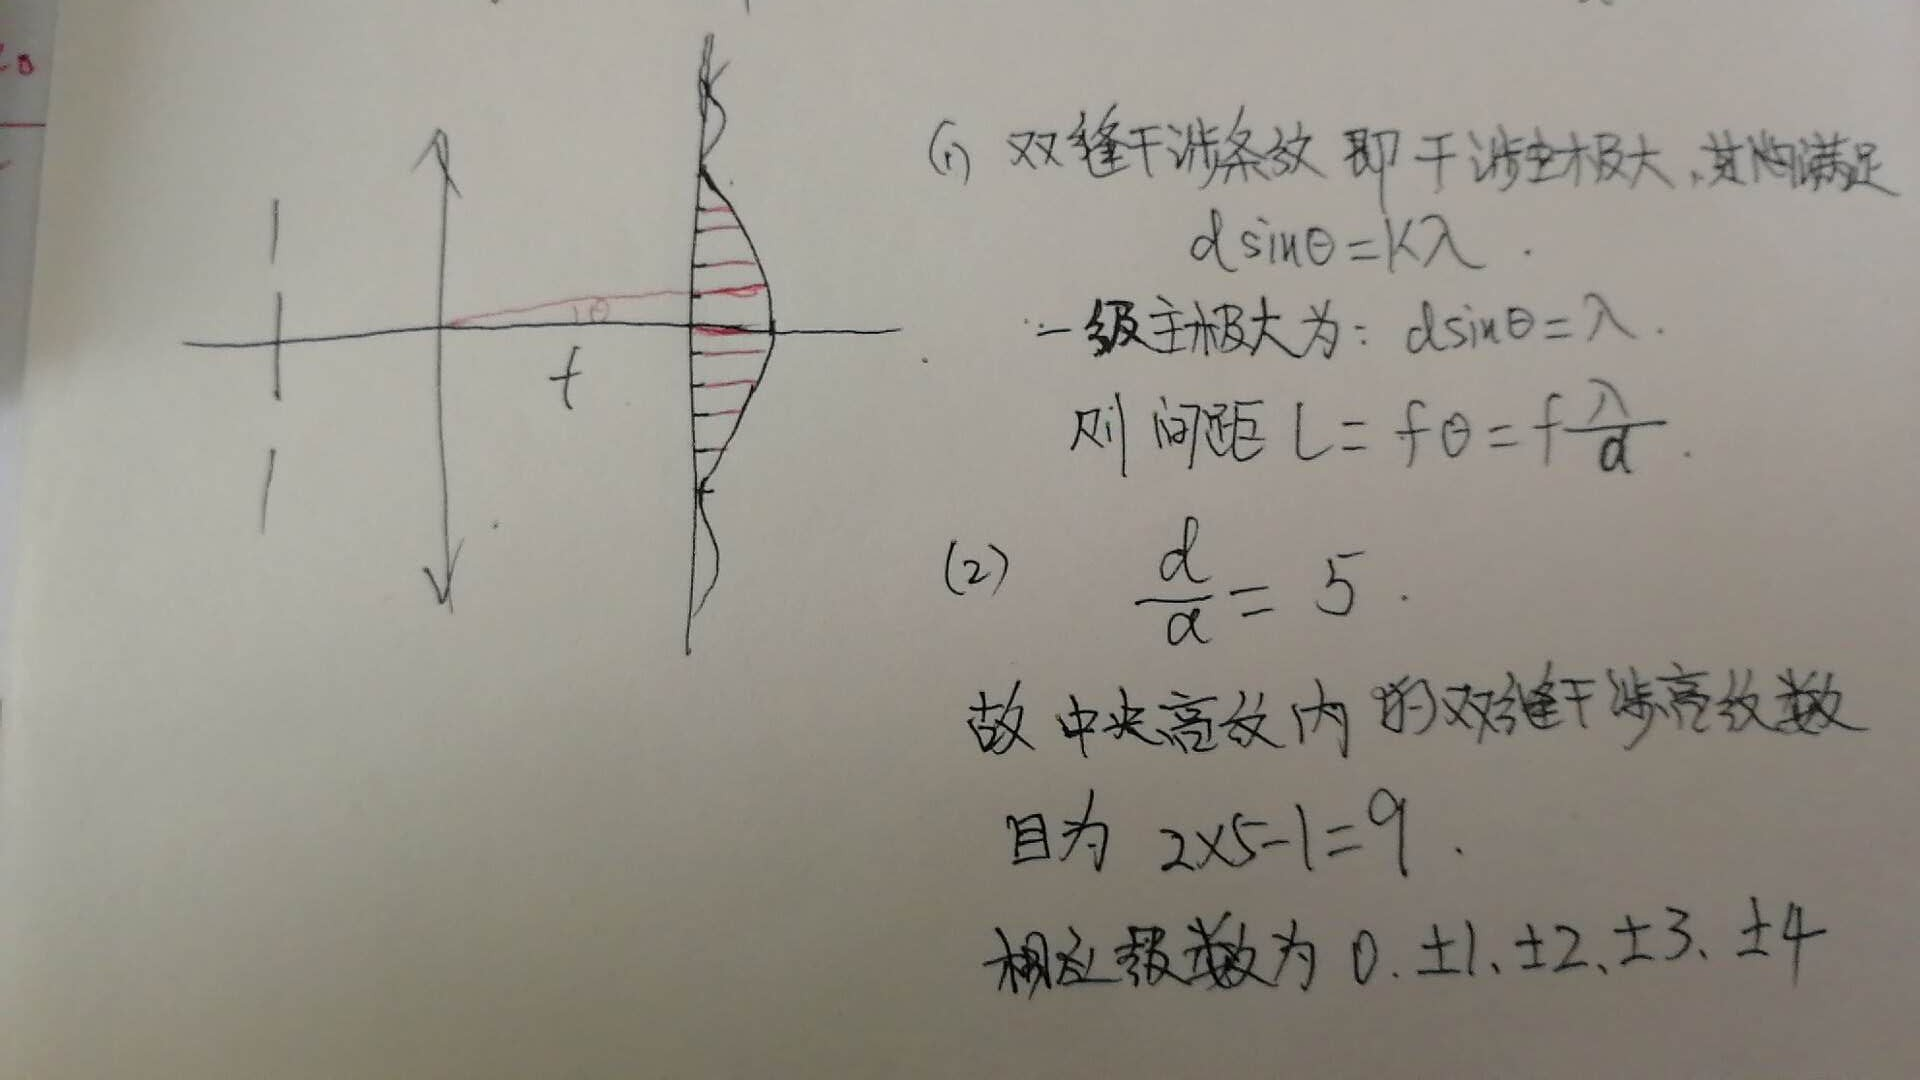 (1) 双缝干涉条纹即干涉主极大,其均满足
dsinθ=Kλ.
一级主极大为: dsinθ=λ.
则间距 L= fθ = f λ/d.
θ
f
(2) d/a = 5.
故中央亮纹内的双缝干涉亮纹数
目为 2×5-1=9.
相应级数为 0. ±1、±2、±3、±4